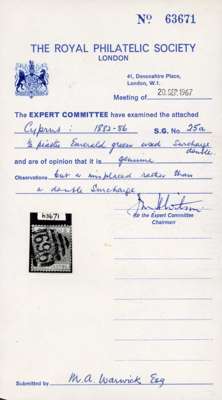 No 63671
THE ROYAL PHILATELIC SOCIETY
LONDON
41, Devonshire Place,
London, W.1.
Meeting of 20 SEP 1967
The EXPERT COMMITTEE have examined the attached
Cyprus: 1882-86 S.G. No. 25a
½ piastre Emerald green used Surcharge double
and are of opinion that it is genuine
Observations but a misplaced rather than
a double Surcharge
for the Expert Committee
Chairman
63671
969
Submitted by M.A. Warwick Esq